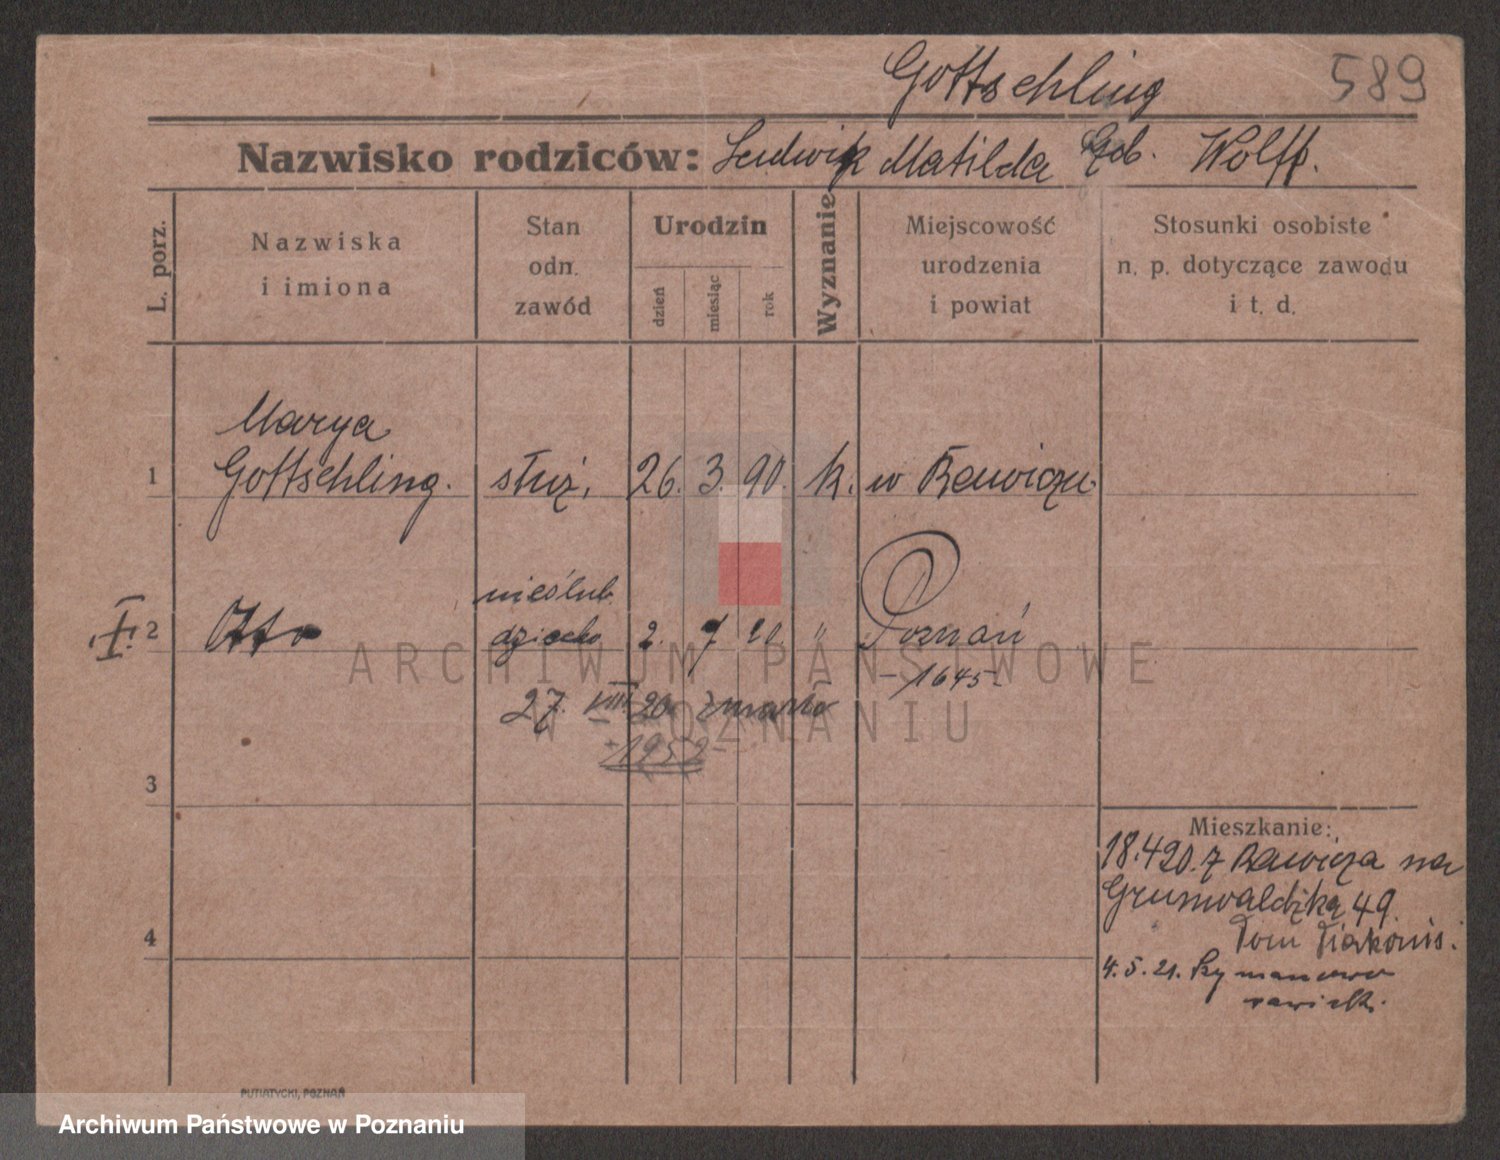 Gottschling 589
Nazwisko rodziców: Ludwik Matilda Wolff.
L. porz.
Nazwiska
i imiona
Stan
odn.
zawód
Urodzin
dzień
miesiąc
rok
Wyznanie
Miejscowość
urodzenia
i powiat
Stosunki osobiste
n. p. dotyczące zawodu
i t. d.
Marya
1 Gottschling. służ. 26. 3. 90. k. w Rawiczu
nieślub.
2 Otto dziecko 2. 7 20 " Poznań
-1645-
27. VIII 20. zmarło
1952
3
Mieszkanie:
18.4 20. z Rawicza na
Grunwaldzką 49.
Dom Diakonis.
4
4. 5. 21. Szymanowo
rawick.
PUTIATYCKI, POZNAŃ
ARCHIWUM PAŃSTWOWE
W POZNANIU
Archiwum Państwowe w Poznaniu